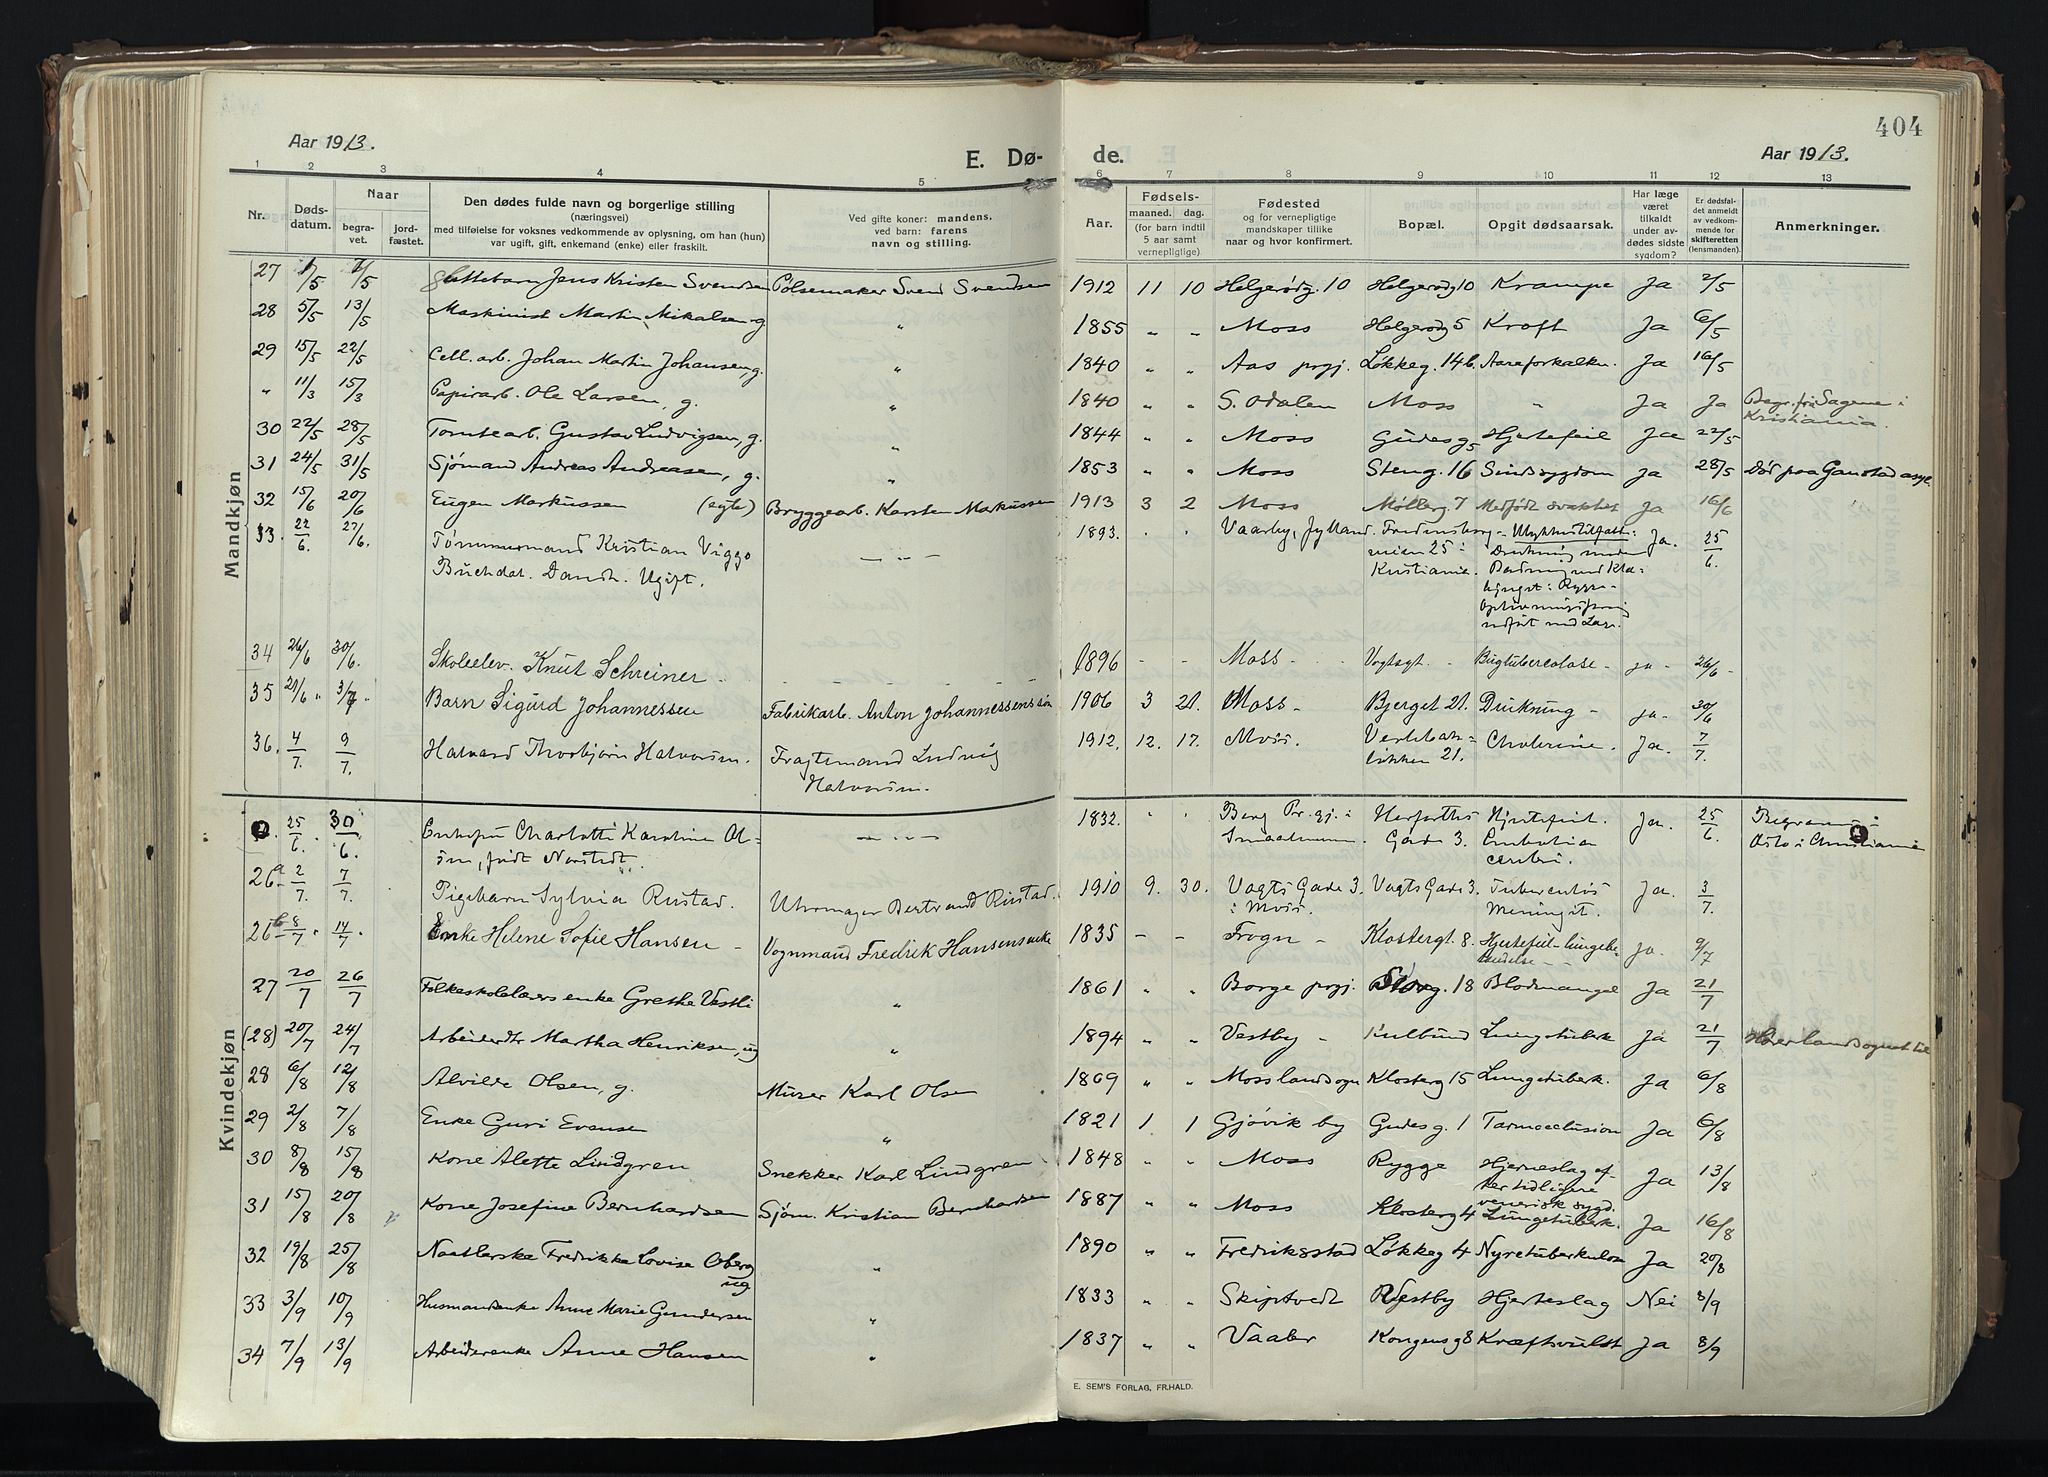 404
Aar 1913.
E. Dø-
de.
Aar 1913.
1 2 3 4 5 6 7 8 9 10 11 12 13
Nr.
Døds-
datum.
Naar
begra-
vet.
jord-
fæstet.
Den dødes fulde navn og borgerlige stilling
(næringsvei)
med tilføielse for voksnes vedkommende av oplysning, om han (hun)
var ugift, gift, enkemand (enke) eller fraskilt.
Ved gifte koner: mandens,
ved barn: farens
navn og stilling.
Aar.
Fødsels-
maaned. dag.
(for barn indtil
5 aar samt
vernepligtige).
Fødested
og for vernepligtige
mandskaper tillike
naar og hvor konfirmert.
Bopæl.
Opgit dødsaarsak.
Har læge
været
tilkaldt
under av-
dødes sidste
sygdom?
Er dødsfal-
det anmeldt
av vedkom-
mende for
skifteretten
(lensmanden).
Anmerkninger.
Mandkjøn
27 1/5 7/5 Gattebarn Jens Kristen Svendsen Pølsemaker Svend Svendsen 1912 11 10 Helgerødg. 10 Helgerødg 10 Krampe Ja 2/5
28 5/5 13/5 Maskinist Martin Mikalsen, g. " 1855 " " Moss Helgerødg 5 Kræft Ja 6/5
29 15/5 22/5 Cell. arb. Johan Martin Johansen, g. " 1840 " " Aas prgj. Løkkeg. 14b. Aareforkalkn. Ja 16/5
" 11/3 15/3 Papirarb. Ole Larsen, g. " 1840 " " S. Odalen Moss " Ja Ja Begr. fra Sagene i
Kristiania.
30 22/5 28/5 Tomtearb. Gustav Ludvigsen, g. " 1844 " " Moss Gudes g 5 Hjertefeil Ja 22/5
31 24/5 31/5 Sjømand Andreas Andreasen, g. " 1853 " " Moss Steng. 16 Sindssygdom Ja 28/5 Død paa Gaustad asyl.
32 15/6 20/6 Eugen Markussen (egte) Bryggearb. Karsten Markussen 1913 3 2 Moss Møllerg. 7 Medfødt svakhet Ja 16/6
33. 22/6. 27/6. Tømmermand Kristian Viggo — " — 1893. " " Vaarby, Jylland. Fredensborg- Ulykkestilfælde: Ja. 25/6.
Buchdal. Dansk. Ugift. veien 25 i Drukning under
Kristiania. Badning ved Kla-
Oplivningsforsøg
34 26/6 30/6. Skoleelev. Knut Schreiner - 1896 - - Moss - Vogtsgt. - Bugtuberculose - ja - 26/6 -
35 29/6 " 3/7 " Barn Sigurd Johannessen Fabrikarb. Anton Johannessens søn 1906 3 21. Moss - Bjerget 21. Drukning - ja - 30/6
36. 4/7. 9/7. Halvard Thorbjørn Halvorsen. Fragtemand Ludvig 1912. 12. 17. Moss. Verlebak- Cholerine. Ja. 7/7.
Halvorsen. løkken 21.
Kvindekjøn
25/6. 30/6. Enkefru Charlotte Karoline Ol- — " — 1832. " " Berg Pr.gj. i Herfølhs Hjertefeil. Ja. 25/6. Begraven i
sen, født Norstedt. Smaalenene. Gade 3. Embolia Oslo i Christiania
cerebri.
26a 2/7. 7/7. Pigebarn Sylvia Rustad. Uhrmager Bertrand Rustad. 1910 9. 30. Vogts Gade 3. Vogts Gade 3. Tuberculøs Ja. 3/7.
i Moss. Meningit.
26b 8/7. 14/7. Enke Helene Sofie Hansen - Vognmand Fredrik Hansens enke 1835 - - Frogn - Klostergt. 8. Hjertefeil - lungebe- Ja. 9/7
tændelse - -
27 20/7 26/7 Folkeskolelærs enke Grethe Vestli " 1861 " " Borge prgj. Storg. 18 Blodmangel Ja 21/7
(28) 20/7 24/7 Arbeiderdtr Martha Henriksen, ug " 1894 " " Vestby - Kulbund Lungetuberk Ja 21/7 Hører landsognet til
28 6/8 12/8 Alvilde Olsen, g. Murer Karl Olsen 1869 " " Moss landsogn Klosterg 15 Lungetuberk. Ja 6/8
29 2/8 7/8 Enke Guri Evensen " 1821 1 1 Gjøvik by Gudes g. 1 Tarmocclusion Ja 6/8
30 8/8 15/8 Kone Alette Lindgren Snekker Karl Lindgren 1848 " " Moss Rygge Hjerneslag ef- Ja 13/8
ter tidligere
venerisk sygd.
31 15/8 20/8 Kone Josefine Bernhardsen Sjøm. Kristian Bernhardsen 1887 " " Moss Klosterg 4 Lungetuberk. Ja 16/8
32 19/8 25/8 Naatlerske Fredrikke Lovise Oberg " 1890 " " Fredriksstad Løkkeg 4 Nyretuberkulose Ja 20/8
ug
33 3/9 10/9 Husmandsenke Anne Marie Gundersen " 1833 " " Skiptvedt Vestby Hjerteslag Nei 8/9
34 7/9 13/9 Arbeiderenke Anne Hansen " 1837 " " Vaaler Kongens g 8 Kræftsvulst Ja 8/9
E. SEM'S FORLAG, FR.HALD.